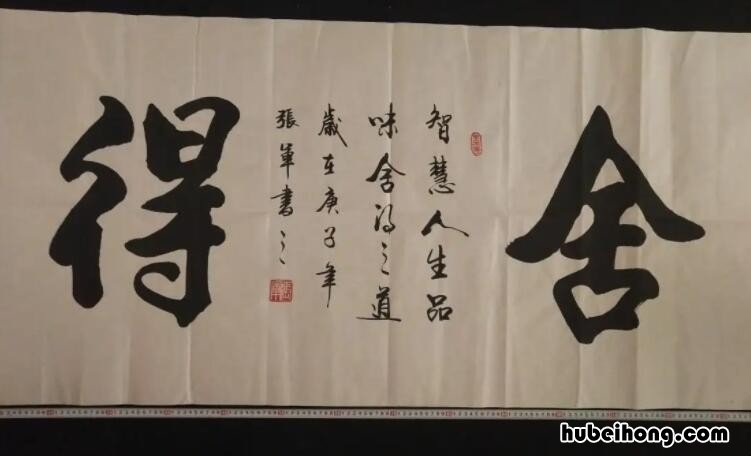 舍
智慧人生品
味舍得之道
歲在庚子年
張軍書之
得
hubeihong.com